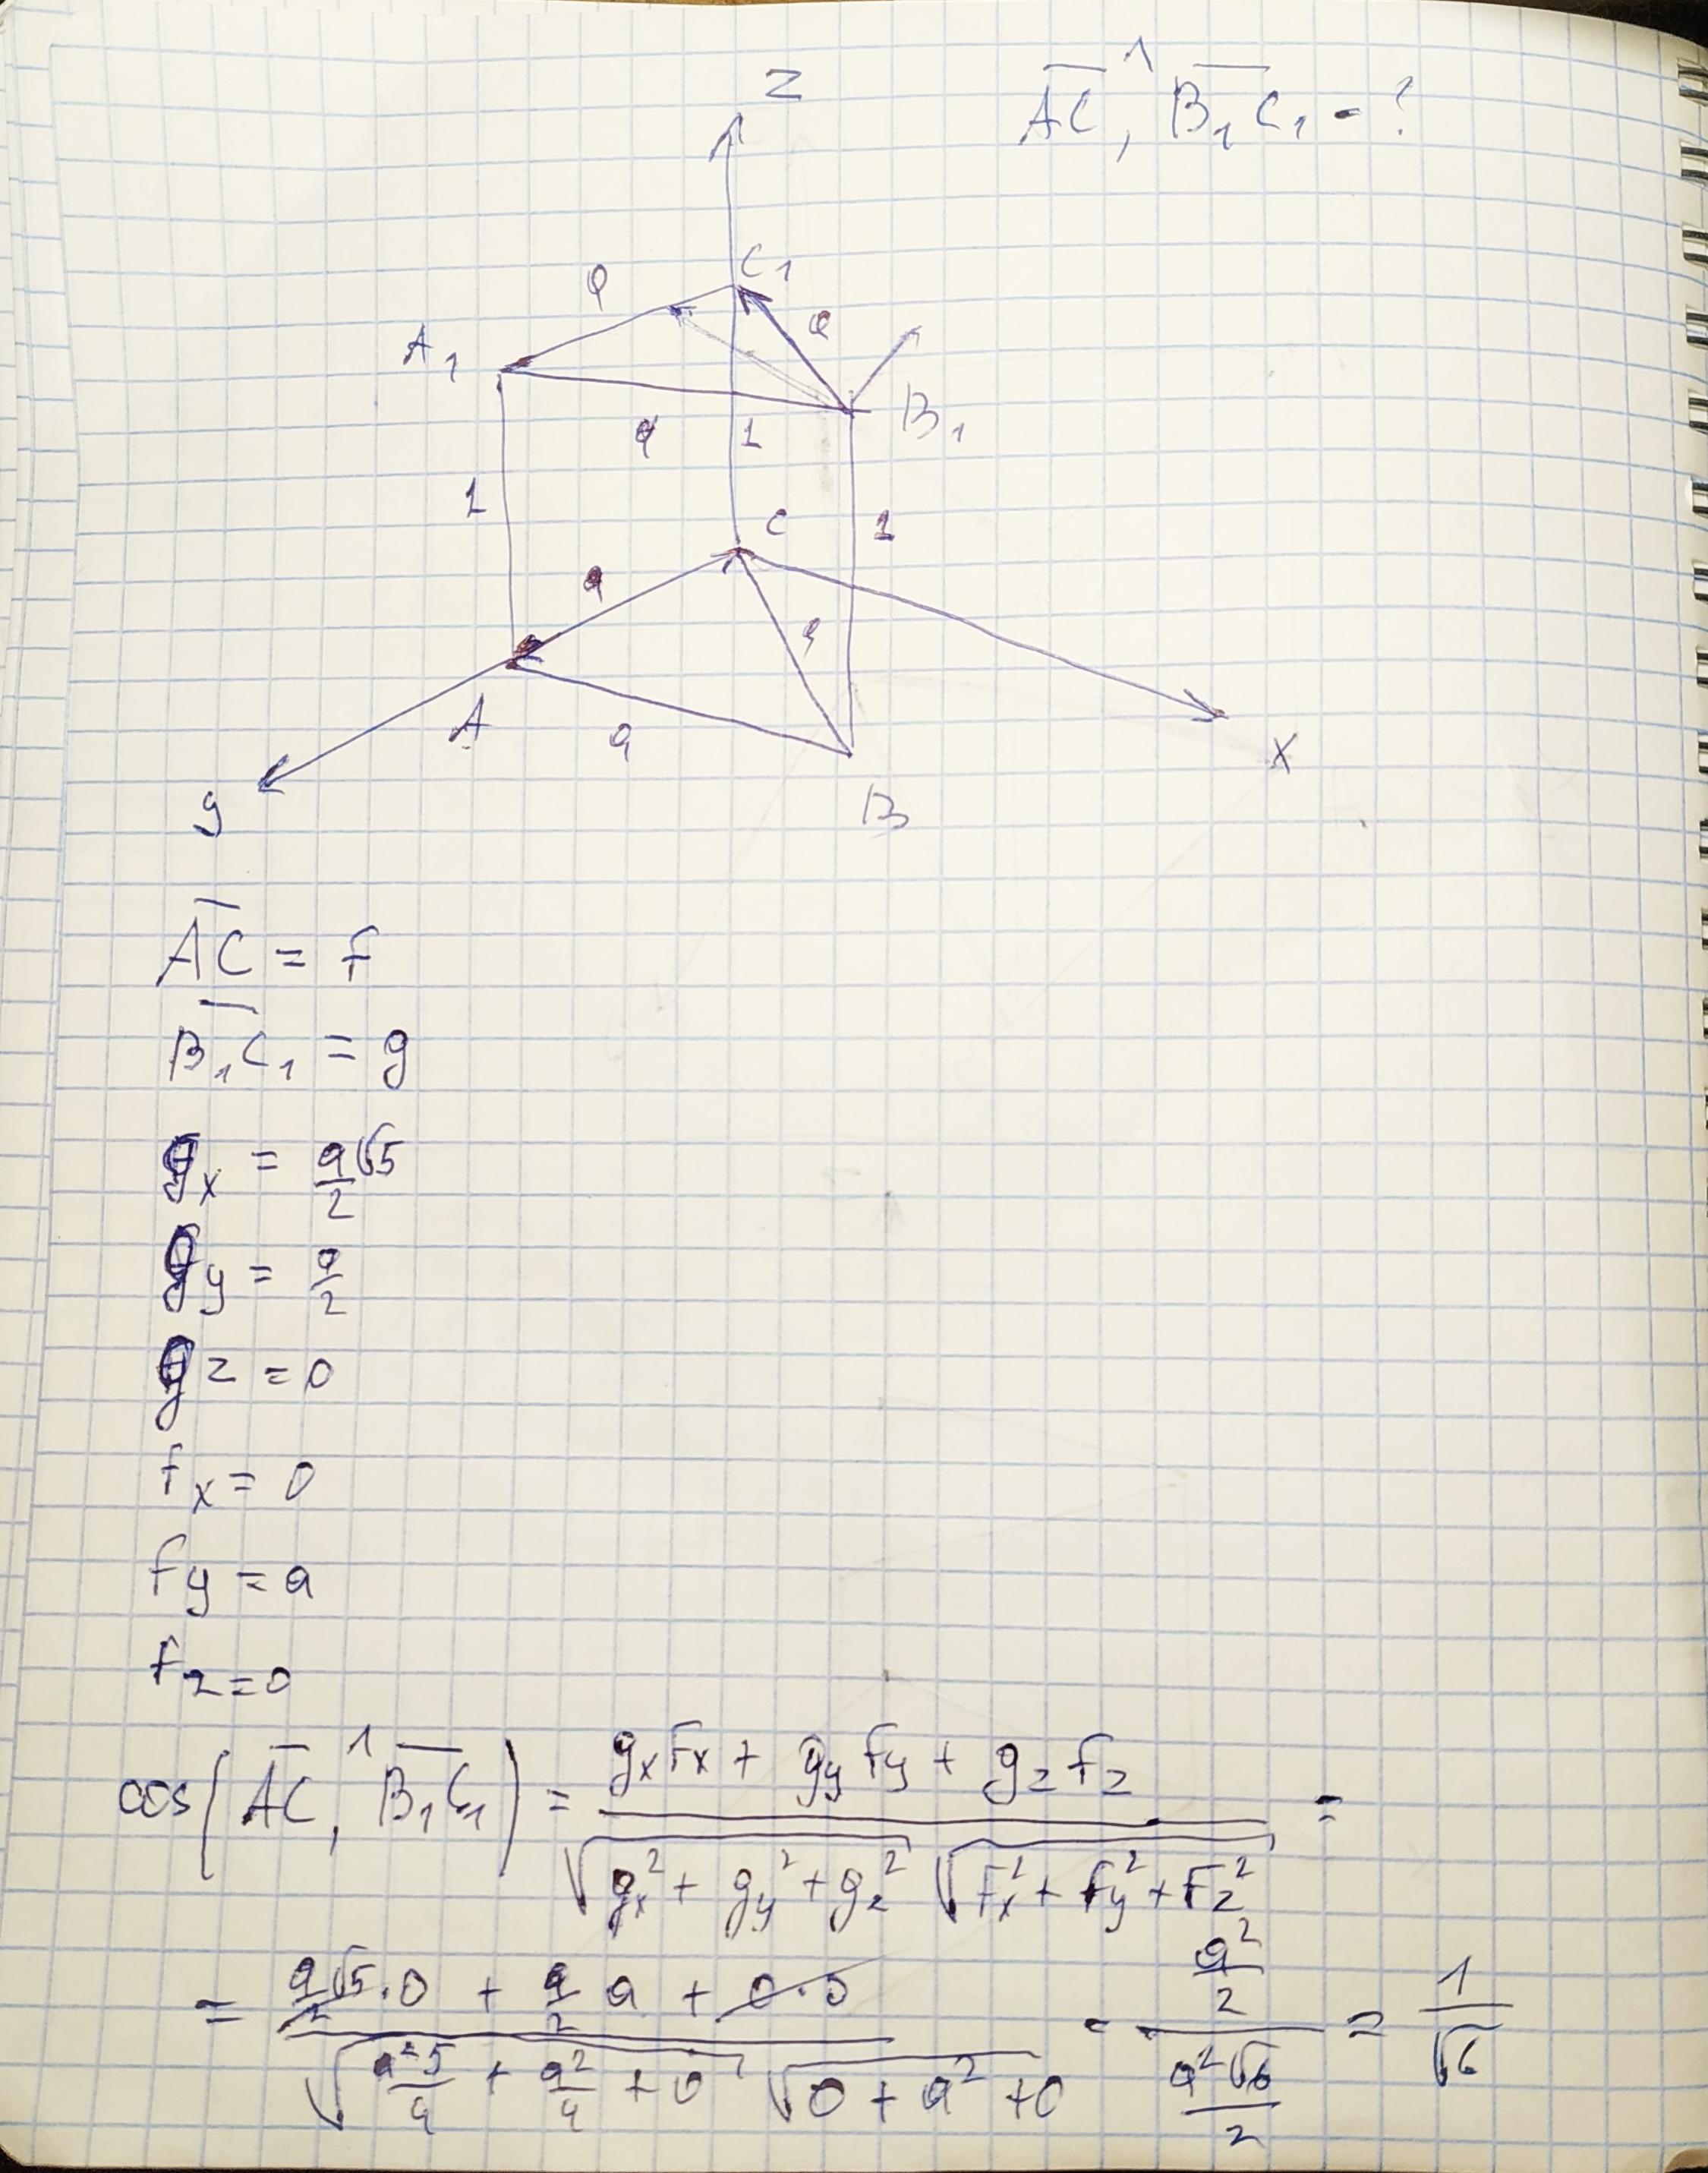 z
AC, ^ B₁C₁ - ?
C₁
a a
A₁
B₁
a 1
1
C 1
a
a
A
a
x
y
B
AC = f
B₁C₁ = g
gx = a/2 √5
gy = a/2
gz = 0
fx = 0
fy = a
fz = 0
cos(AC, ^ B₁C₁) = (gx fx + gy fy + gz fz) / (√(gx² + gy² + gz²) √(fx² + fy² + fz²)) =
= (a/2 √5 · 0 + a/2 a + 0 · 0) / (√(a²5/4 + a²/4 + 0) √(0 + a² + 0)) = (a²/2) / (a²√6/2) = 1/√6